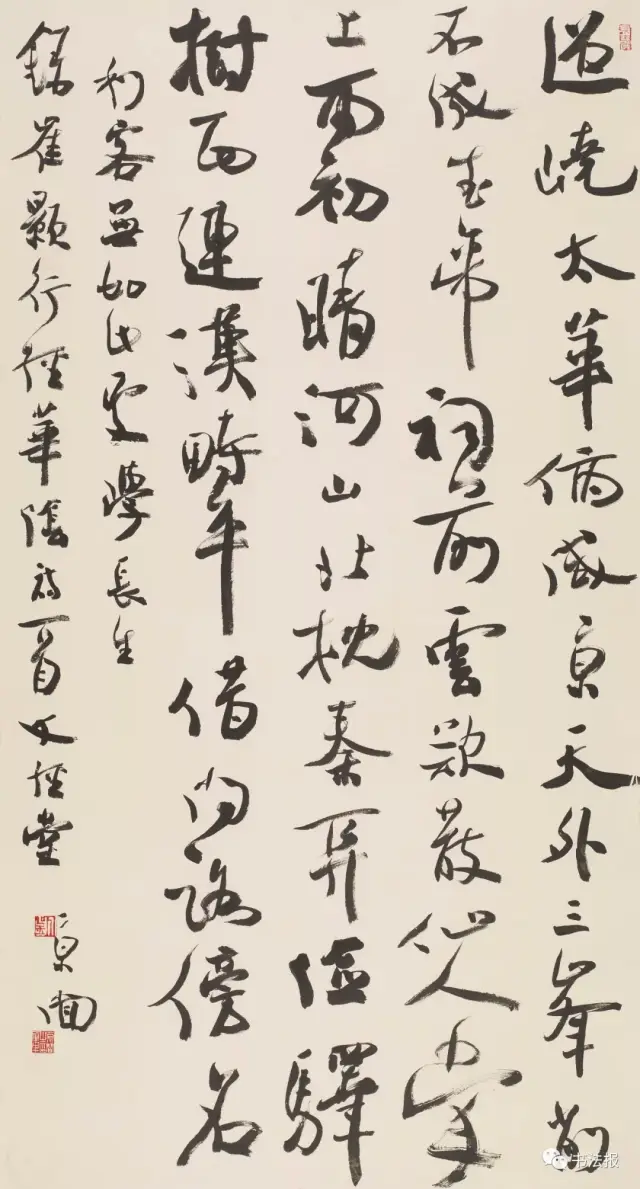 迢嶢太華俯咸京天外三峯削
不成武帝祠前雲欲散仙人掌
上雨初晴河山北枕秦關險驛
樹西連漢畤平借問路傍名
利客無如此處學長生
錄崔顥行經華陰詩一首文經堂
书法报